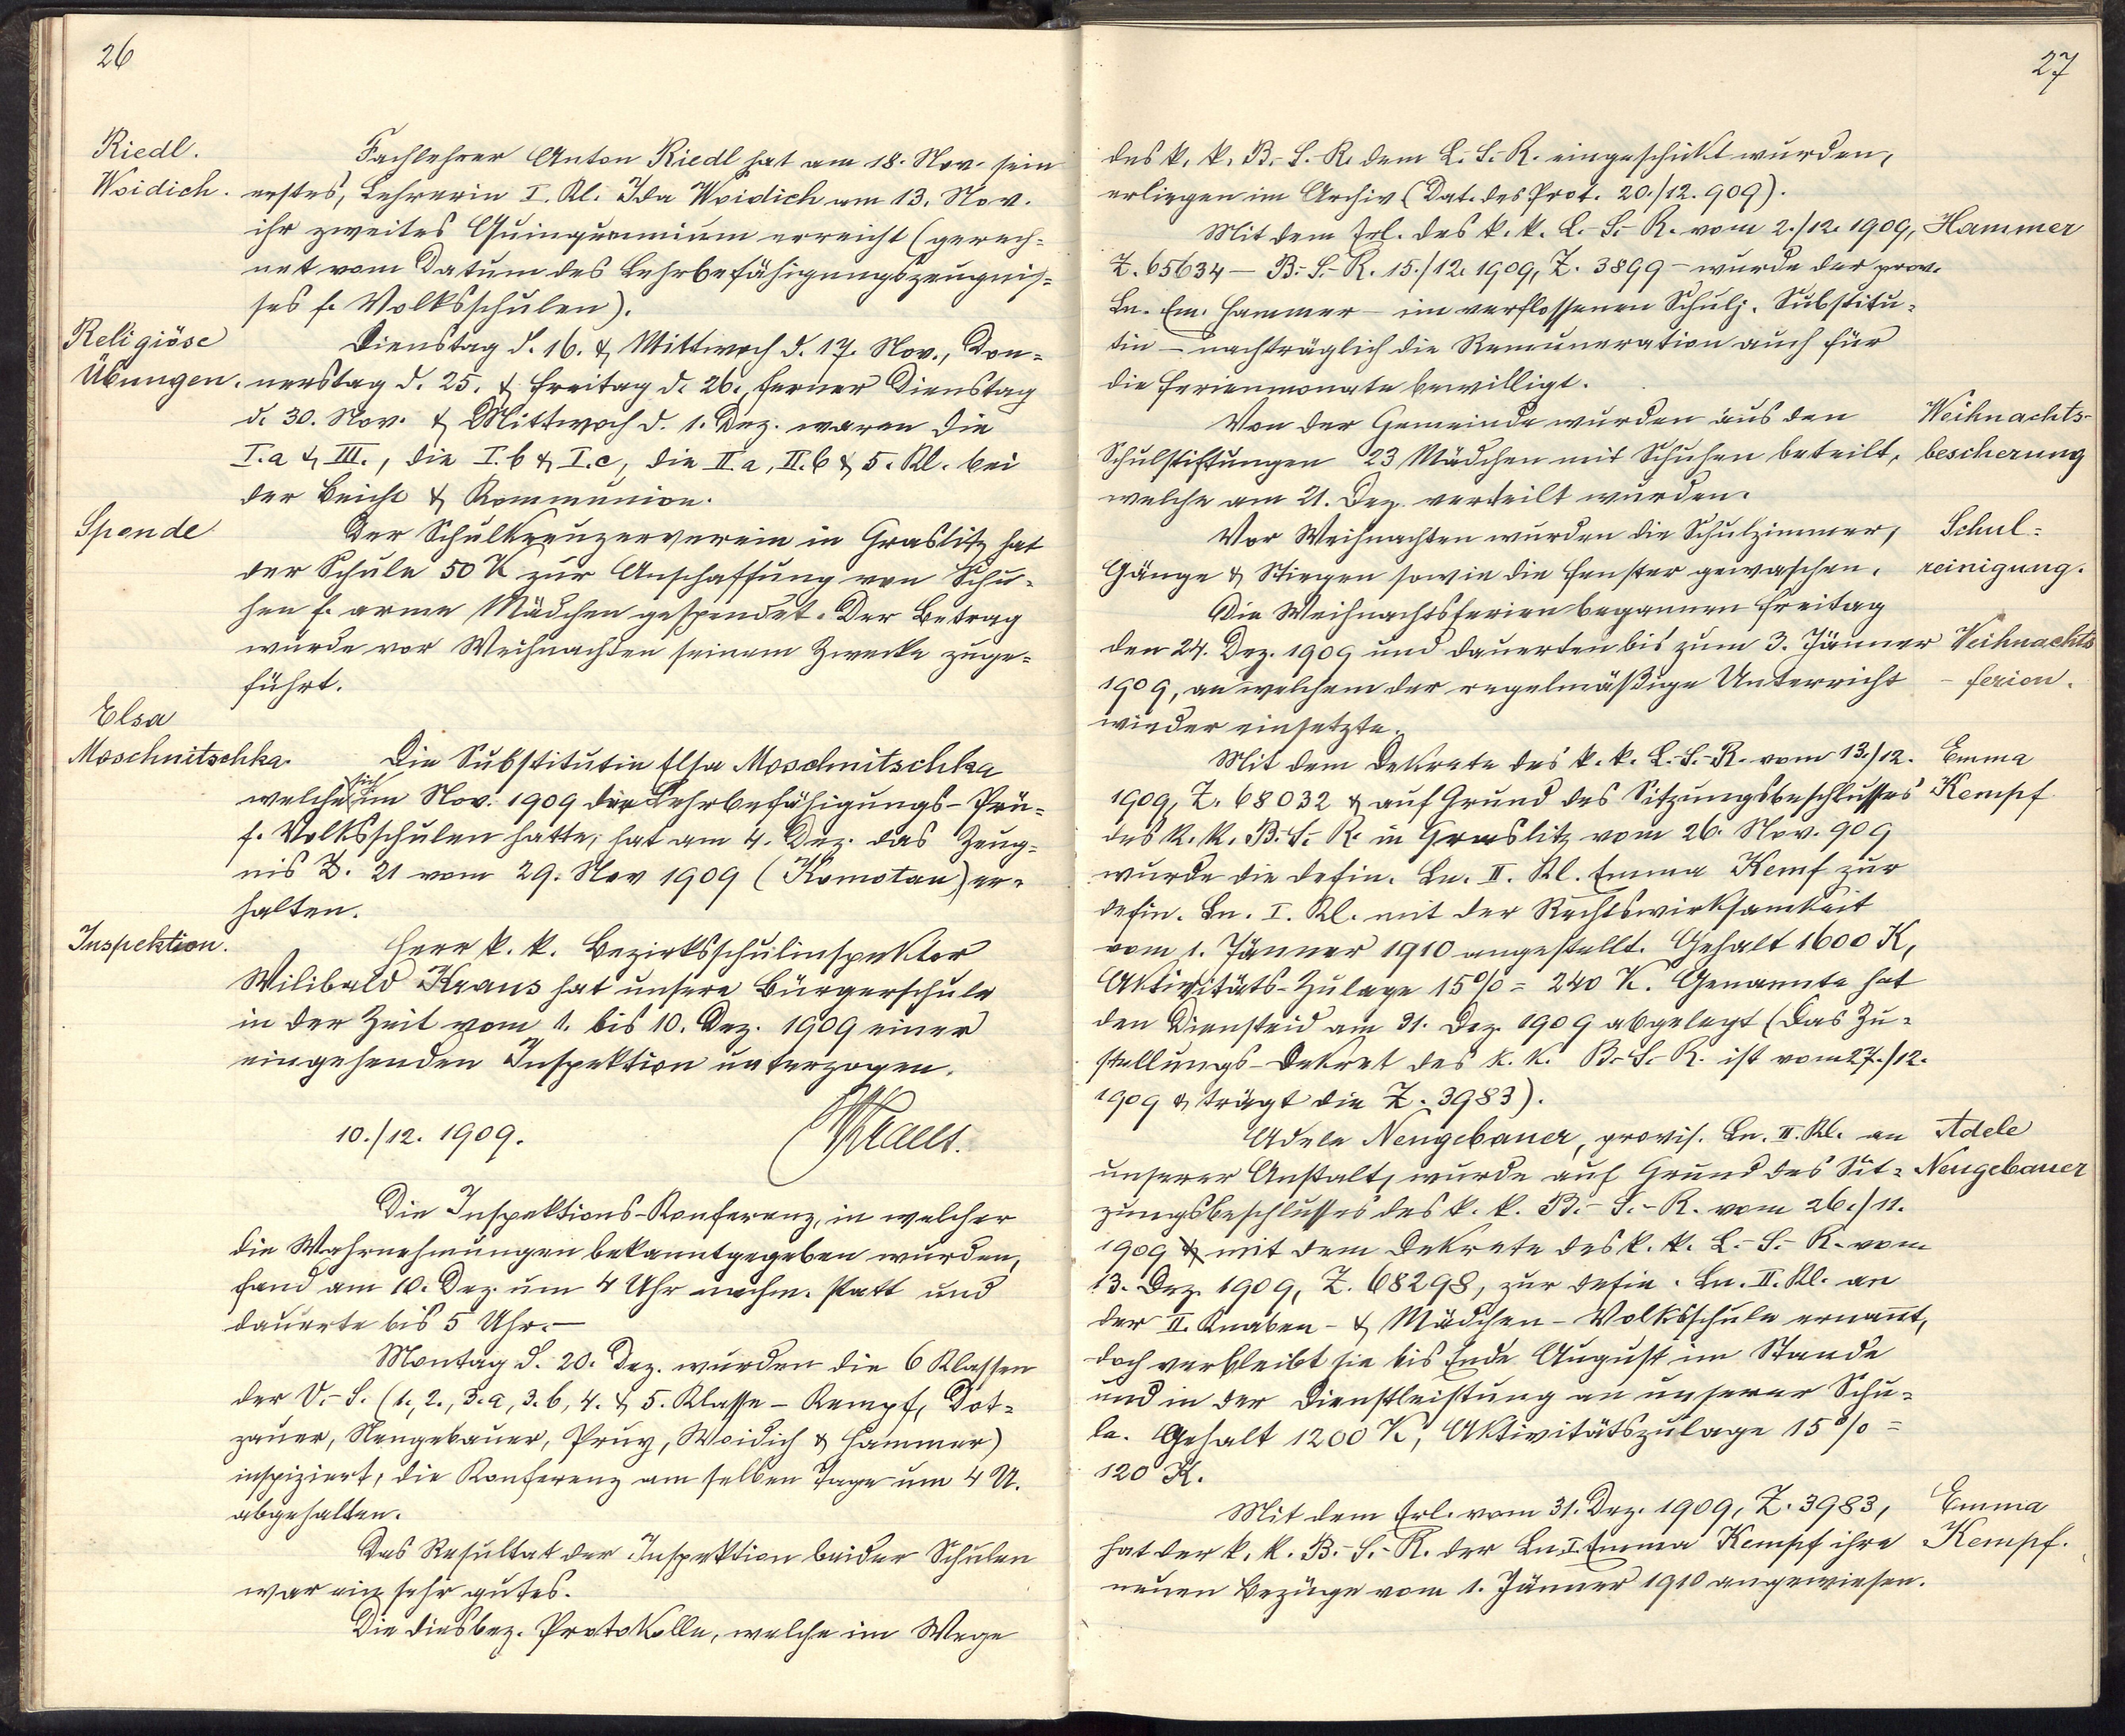 26
Riedl.
Woidich.
Fachlehrer Anton Riedl hat am 18. Nov. sein
erstes, Lehrerin I. Kl. Ida Woidich am 13. Nov.
ihr zweites Quinquennium erreicht (gerech=
net vom Datum des Lehrbefähigungszeugnis=
ses f. Volksschulen).
Religiöse
Übungen.
Dienstag d. 16. & Mittwoch d. 17. Nov., Don=
nerstag d. 25. & Freitag d. 26., ferner Dienstag
d. 30. Nov. & Mittwoch d. 1. Dez. waren die
I.a & III., die I.b & I.c, die II.a, II.b & 5. Kl. bei
der Beicht & Kommunion.
Spende
Der Schulkreuzerverein in Graslitz hat
der Schule 50 K zur Anschaffung von Schu=
hen f. arme Mädchen gespendet. Der Betrag
wurde vor Weihnachten seinem Zwecke zuge=
führt.
Elsa
Moschnitschka.
Die Substitutin Elsa Moschnitschka
welche sich im Nov. 1909 der Lehrbefähigungs-Prü=
f. Volksschulen hatte, hat am 4. Dez. das Zeug=
nis Z. 21 vom 29. Nov 1909 (Komotau) er=
halten.
Inspektion.
Herr k. k. Bezirksschulinspektor
Wilibald Kraus hat unsere Bürgerschule
in der Zeit vom 1. bis 10. Dez. 1909 einer
eingehenden Inspektion unterzogen.
10./12. 1909.
WKraus.
Die Inspektions-Konferenz, in welcher
die Wahrnehmungen bekanntgegeben wurden,
fand am 10. Dez. um 4 Uhr nachm. statt und
dauerte bis 5 Uhr.—
Montag d. 20. Dez. wurden die 6 Klassen
der V.-S. (1., 2., 3.a, 3.b, 4. & 5. Klasse - Kempf, Dot=
zauer, Neugebauer, Pruy, Woidich & Hammer)
inspiziert, die Konferenz am selben Tage um 4 U.
abgehalten.
Das Resultat der Inspektion beider Schulen
war ein sehr gutes.
Die diesbez. Protokolle, welche im Wege
27
des k. k. B.-S.-R. dem L.-S.-R. eingeschickt wurden,
erliegen im Archiv (Dat. des Prot. 20./12. 909).
Mit dem Erl. des k. k. L.-S.-R. vom 2./12. 1909,
Hammer
Z. 65634 — B.-S.-R. 15./12. 1909, Z. 3899 - wurde der prov.
Ln. Em. Hammer - im verflossenen Schulj. Substitu=
tin - nachträglich die Remuneration auch für
die Ferienmonate bewilligt.
Von der Gemeinde wurden aus den
Weihnachts-
Schulstiftungen 23 Mädchen mit Schuhen beteilt,
bescherung
welche am 21. Dez. verteilt wurden.
Vor Weihnachten wurden die Schulzimmer,
Schul=
Gänge & Stiegen sowie die Fenster gewaschen.
reinigung.
Die Weihnachtsferien begannen Freitag
den 24. Dez. 1909 und dauerten bis zum 3. Jänner
Weihnachts
1909, an welchem der regelmäßige Unterricht
- ferien.
wieder einsetzte.
Mit dem Dekrete des k. k. L.-S.-R. vom 13./12.
Emma
1909, Z. 68032 & auf Grund des Sitzungsbeschlusses
Kempf
des k. k. B.-S.-R. in Graslitz vom 26. Nov. 909
wurde die defin. Ln. II. Kl. Emma Kemf zur
defin. Ln. I. Kl. mit der Rechtswirksamkeit
vom 1. Jänner 1910 angestellt. Gehalt 1600 K,
Aktivitäts-Zulage 15% = 240 K. Genannte hat
den Diensteid am 31. Dez. 1909 abgelegt (Das Zu=
stellungs-Dekret des k. k. B.-S.-R. ist vom 27./12.
1909 & trägt die Z. 3983).
Adele Neugebauer, provis. Ln. II. Kl. an
Adele
unserer Anstalt, wurde auf Grund des Sit=
Neugebauer
zungsbeschlusses des k. k. B.-S.-R. vom 26./11.
1909 & mit dem Dekrete des k. k. L.-S.-R. vom
13. Dez. 1909, Z. 68298, zur defin. Ln. II. Kl. an
der II. Knaben- & Mädchen-Volksschule ernannt,
doch verbleibt sie bis Ende August im Stande
und in der Dienstleistung an unserer Schu=
le. Gehalt 1200 K, Aktivitätszulage 15% =
120 K.
Mit dem Erl. vom 31. Dez. 1909, Z. 3983,
Emma
hat der k. k. B.-S.-R. der Ln. I. Emma Kempf ihre
Kempf.
neuen Bezüge vom 1. Jänner 1910 angewiesen.